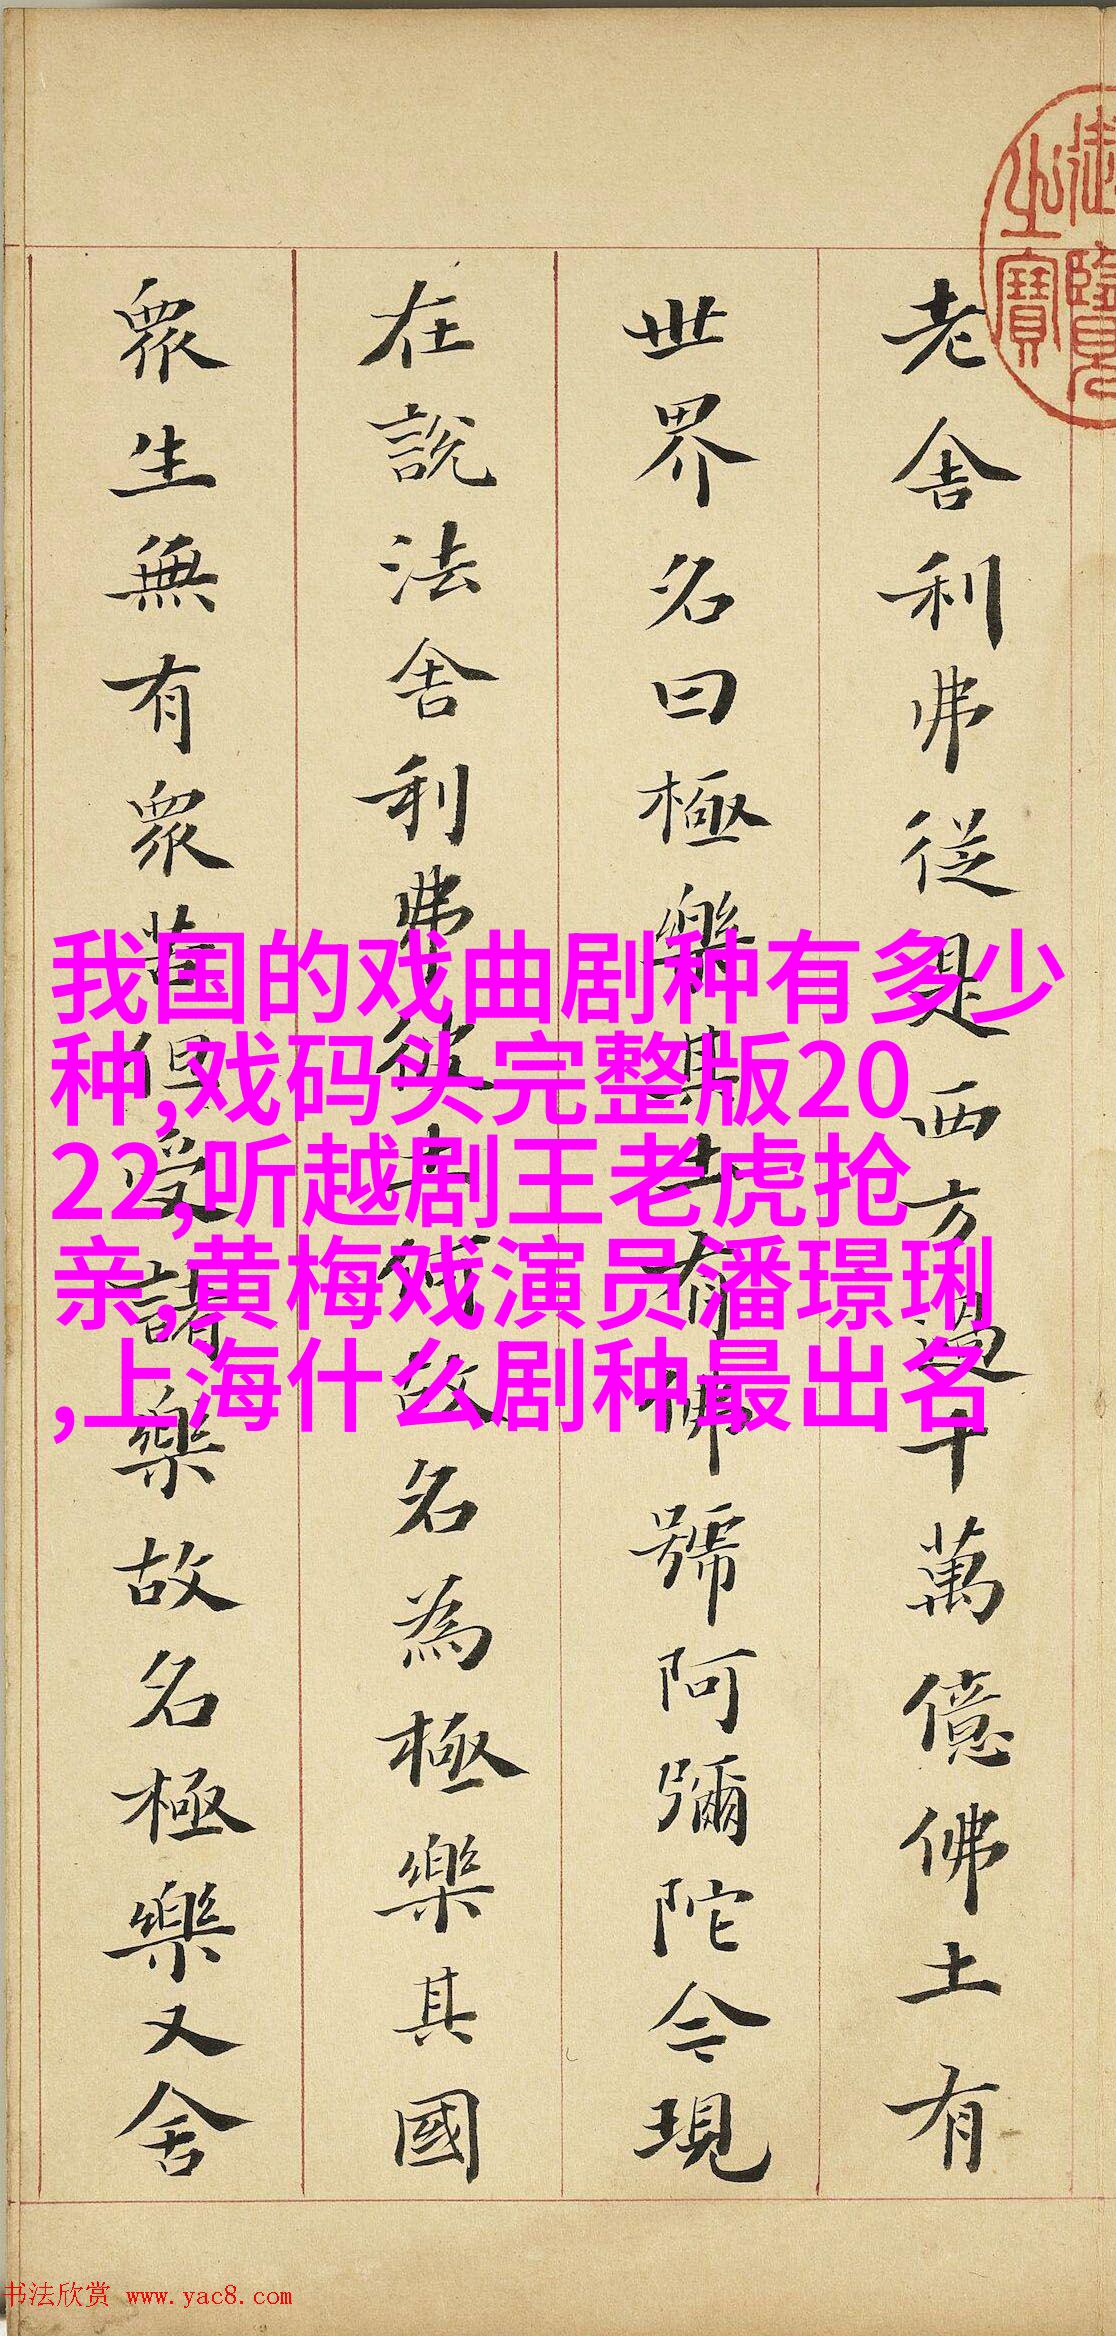 御覽之寶
老舍利弗從是西方過十萬億佛土有
世界名曰極樂其土有佛號阿彌陀今現
在說法舍利弗彼土何故名為極樂其國
眾生無有眾苦但受諸樂故名極樂又舍
我国的戏曲剧种有多少
种,戏码头完整版20
22,听越剧王老虎抢
亲,黄梅戏演员潘璟琍
,上海什么剧种最出名
书法欣赏 www.yac8.com